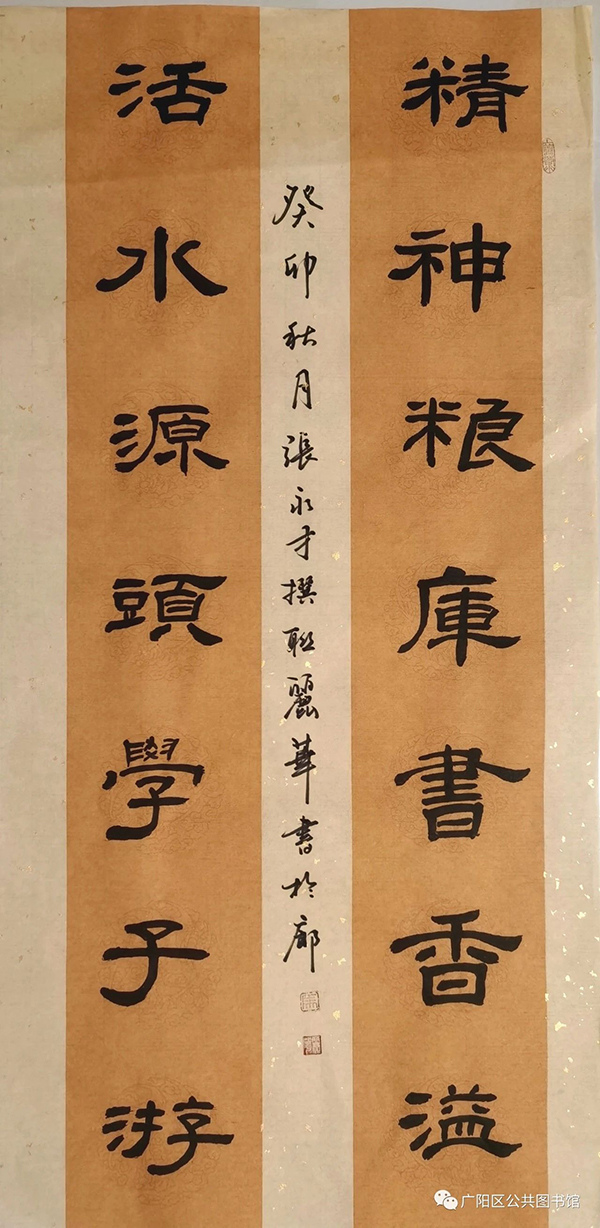 精神粮庫書香溢
癸卯秋月張永才撰联麗華書於廊
活水源頭學子游
广阳区公共图书馆